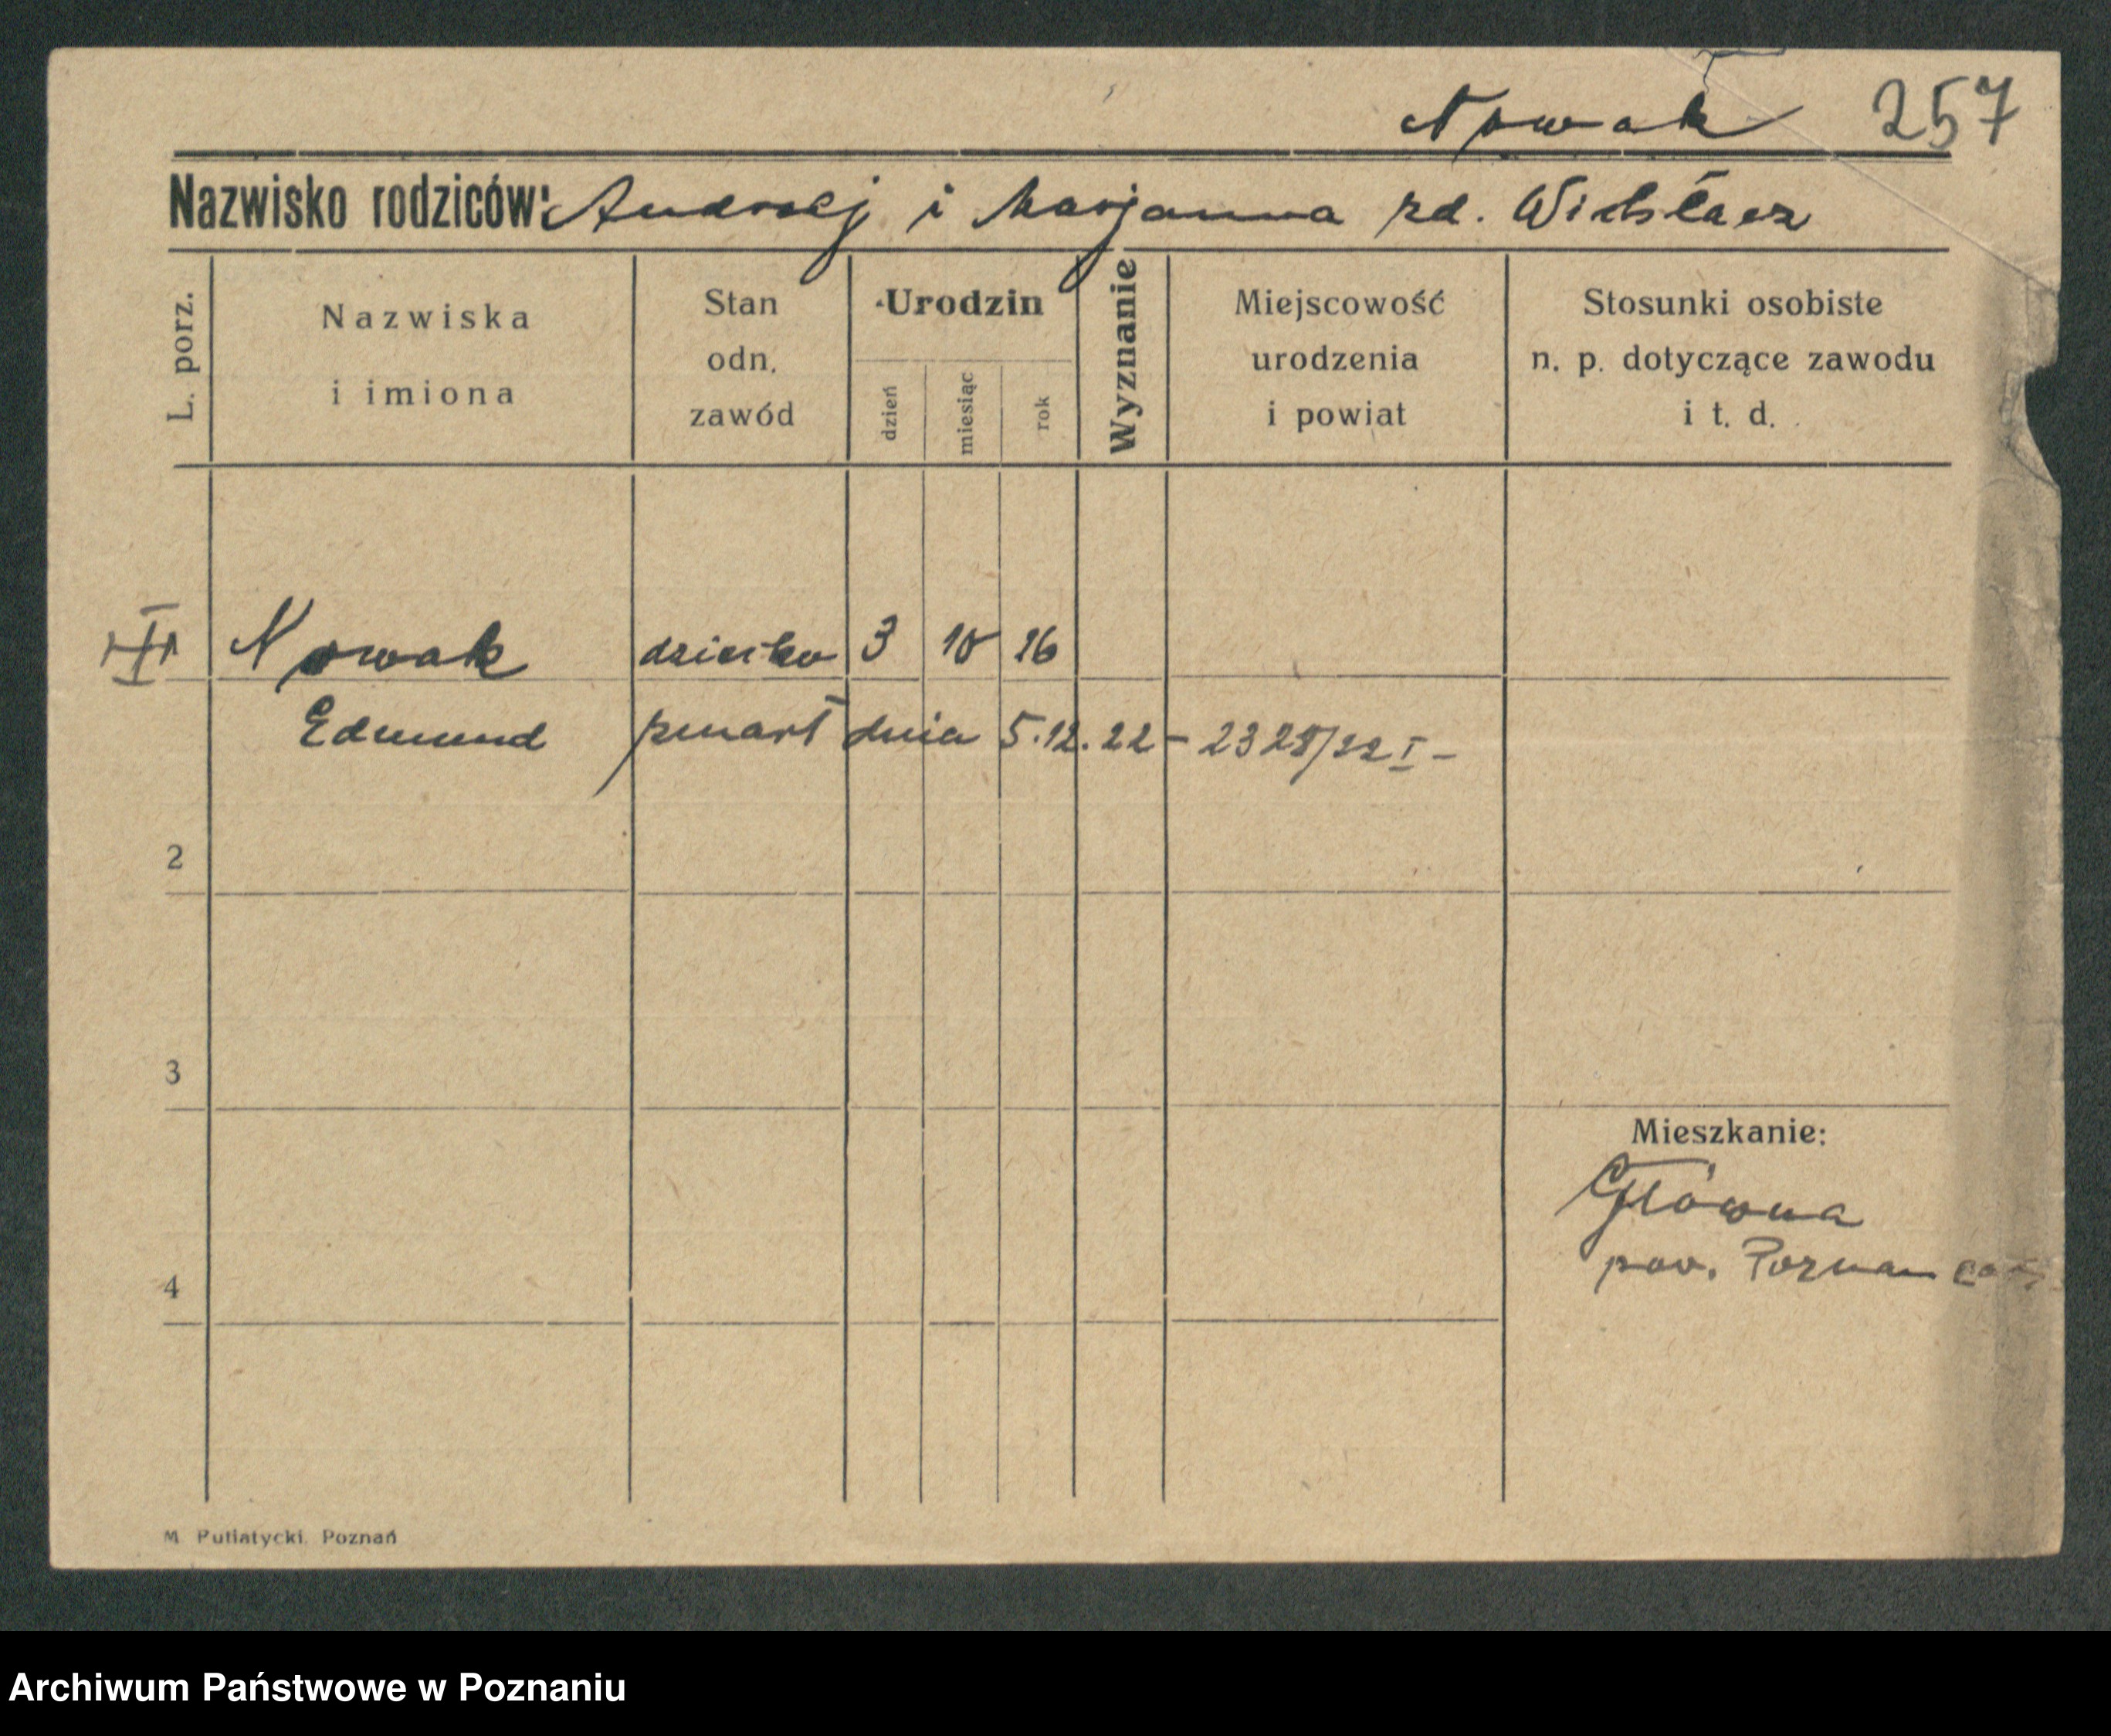 Nowak 257
Nazwisko rodziców: Andrzej i Marjanna zd.
L. porz.
Nazwiska
i imiona
Stan
odn.
zawód
Urodzin
dzień
miesiąc
rok
Wyznanie
Miejscowość
urodzenia
i powiat
Stosunki osobiste
n. p. dotyczące zawodu
i t. d.
Nowak dziecko 3 10 16
Edmund zmarł dnia 5.12.22 - 2328/22 I -
2
3
4
Mieszkanie:
Główna
pow. Poznań
M. Putiatycki, Poznań
Archiwum Państwowe w Poznaniu